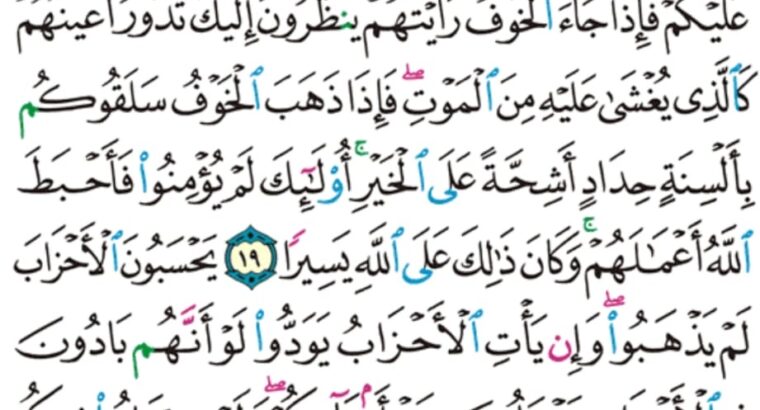 عَلَيْكُمْ فَإِذَا جَآءَ ٱلْخَوْفُ رَأَيْتَهُمْ يَنظُرُونَ إِلَيْكَ تَدُورُ أَعْيُنُهُمْ
كَٱلَّذِى يُغْشَىٰ عَلَيْهِ مِنَ ٱلْمَوْتِۖ فَإِذَا ذَهَبَ ٱلْخَوْفُ سَلَقُوكُم
بِأَلْسِنَةٍ حِدَادٍ أَشِحَّةً عَلَى ٱلْخَيْرِۚ أُو۟لَـٰٓئِكَ لَمْ يُؤْمِنُوا۟ فَأَحْبَطَ
ٱللَّهُ أَعْمَـٰلَهُمْۚ وَكَانَ ذَٰلِكَ عَلَى ٱللَّهِ يَسِيرًا ١٩ يَحْسَبُونَ ٱلْأَحْزَابَ
لَمْ يَذْهَبُوا۟ۖ وَإِن يَأْتِ ٱلْأَحْزَابُ يَوَدُّوا۟ لَوْ أَنَّهُم بَادُونَ